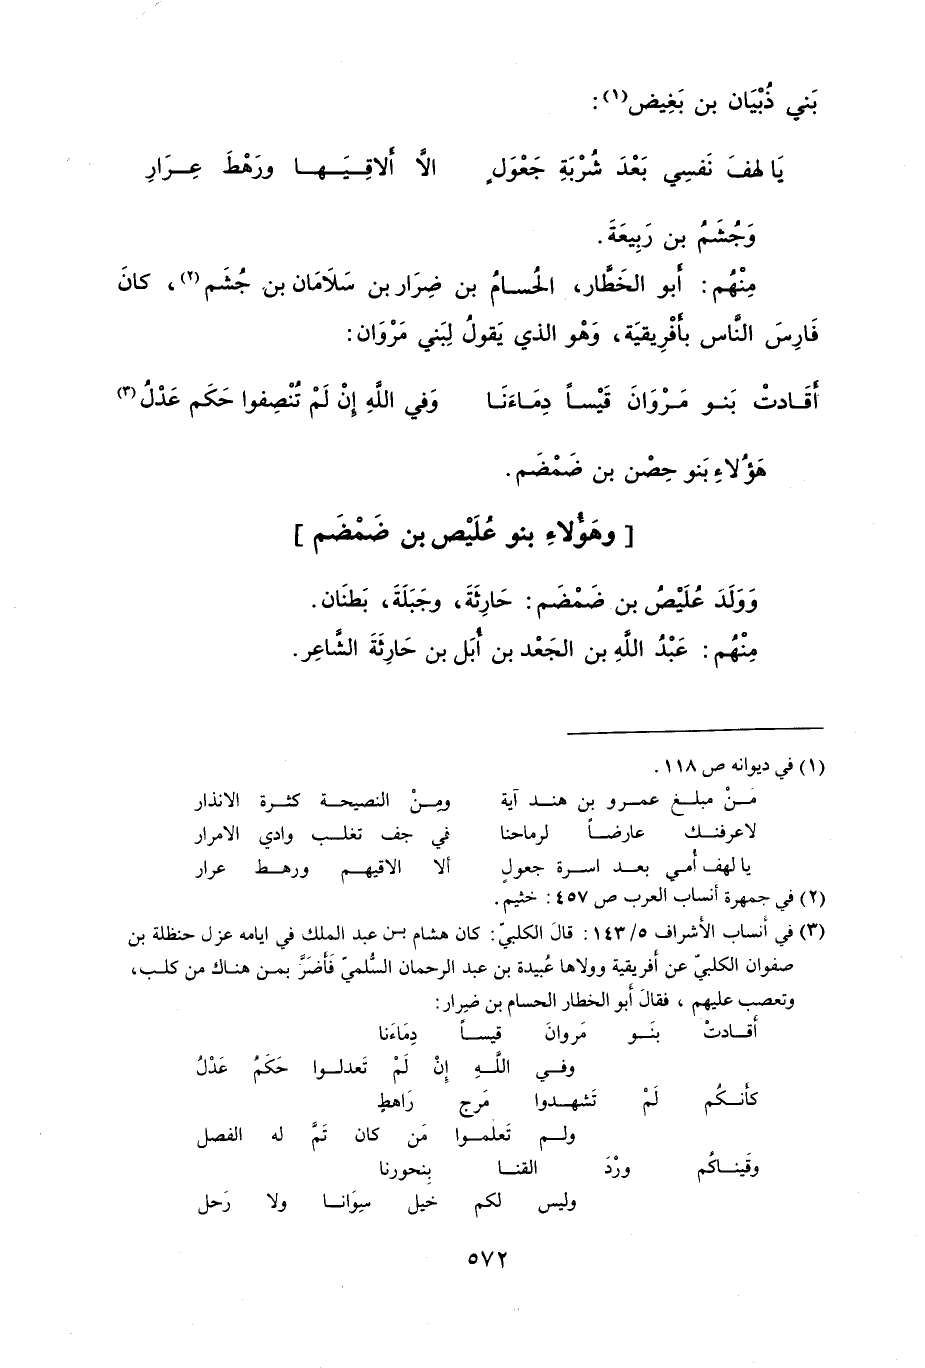 بَني ذُبْيَان بن بَغِيض(١):
يَا لهفَ نَفسِي بَعْدَ شُرْبَةِ جَعْوَلٍ الاَّ أَلاقِيَـهـا ورَهْطَ عِـرَارِ
وَجُشَمُ بن رَبِيعَةَ.
مِنْهُم: أَبو الخَطَّار، الحُسامُ بن ضِرَار بن سَلَامَان بن جُشَم(٢)، كانَ
فَارِسَ النَّاس بأَفْرِيقيَة، وَهْو الذي يَقولُ لِبَني مَرْوَان:
أَقَادتْ بَنو مَرْوَانَ قَيْساً دِمَاءَنَا وَفي اللَّهِ إنْ لَمْ تُنْصِفوا حَكَم عَدْلُ(٣)
هَؤُلاءِ بَنو حِصْن بن ضَمْضَم.
[ وهَؤُلاءِ بنو عُلَيْص بن ضَمْضَم ]
وَوَلَدَ عُلَيْصُ بن ضَمْضَم: حَارِثَةَ، وجَبَلَةَ، بَطنَان.
مِنْهُم: عَبْدُ اللَّهِ بن الجَعْد بن أُبَل بن حَارِثَةَ الشَّاعِر.
(١) في ديوانه ص ١١٨.
مَنْ مبلغ عمرو بن هند آية ومِنْ النصيحة كثرة الانذار
لاعرفنك عارضاً لرماحنا في جف تغلب وادي الامرار
يا لهف أمي بعد اسرة جعولٍ ألا الاقيهم ورهط عرار
(٢) في جمهرة أنساب العرب ص ٤٥٧: خثيم.
(٣) في أنساب الأشراف ١٤٣/٥: قالَ الكلبيّ: كان هشام بن عبد الملك في ايامه عزل حنظلة بن
صفوان الكلبيّ عن أفريقية وولاها عُبيدة بن عبد الرحمان السُلميّ فَأضَرَّ بمن هناك من كلب،
وتعصب عليهم، فقالَ أبو الخطار الحسام بن ضيرار:
أقادتْ بَنو مَروانَ قيساً دِمَاءَنا
وفي اللَّهِ إنْ لَمْ تَعدلوا حَكَمُ عَدْلُ
كأنكُم لَمْ تَشهدوا مَرج رَاهطٍ
ولم تَعلموا مَن كان ثَمَّ له الفصل
وَقَيناكُم ورْدَ القنا بِنحورنا
وليس لكم خيل سِوَانا ولا رَحل
٥٧٢